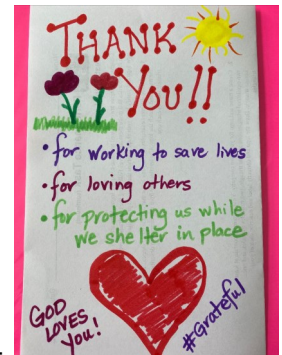 THANK
YOU!!
• for working to save lives
• for loving others
• for protecting us while
we shelter in place
GOD
LOVES
You!
#Grateful